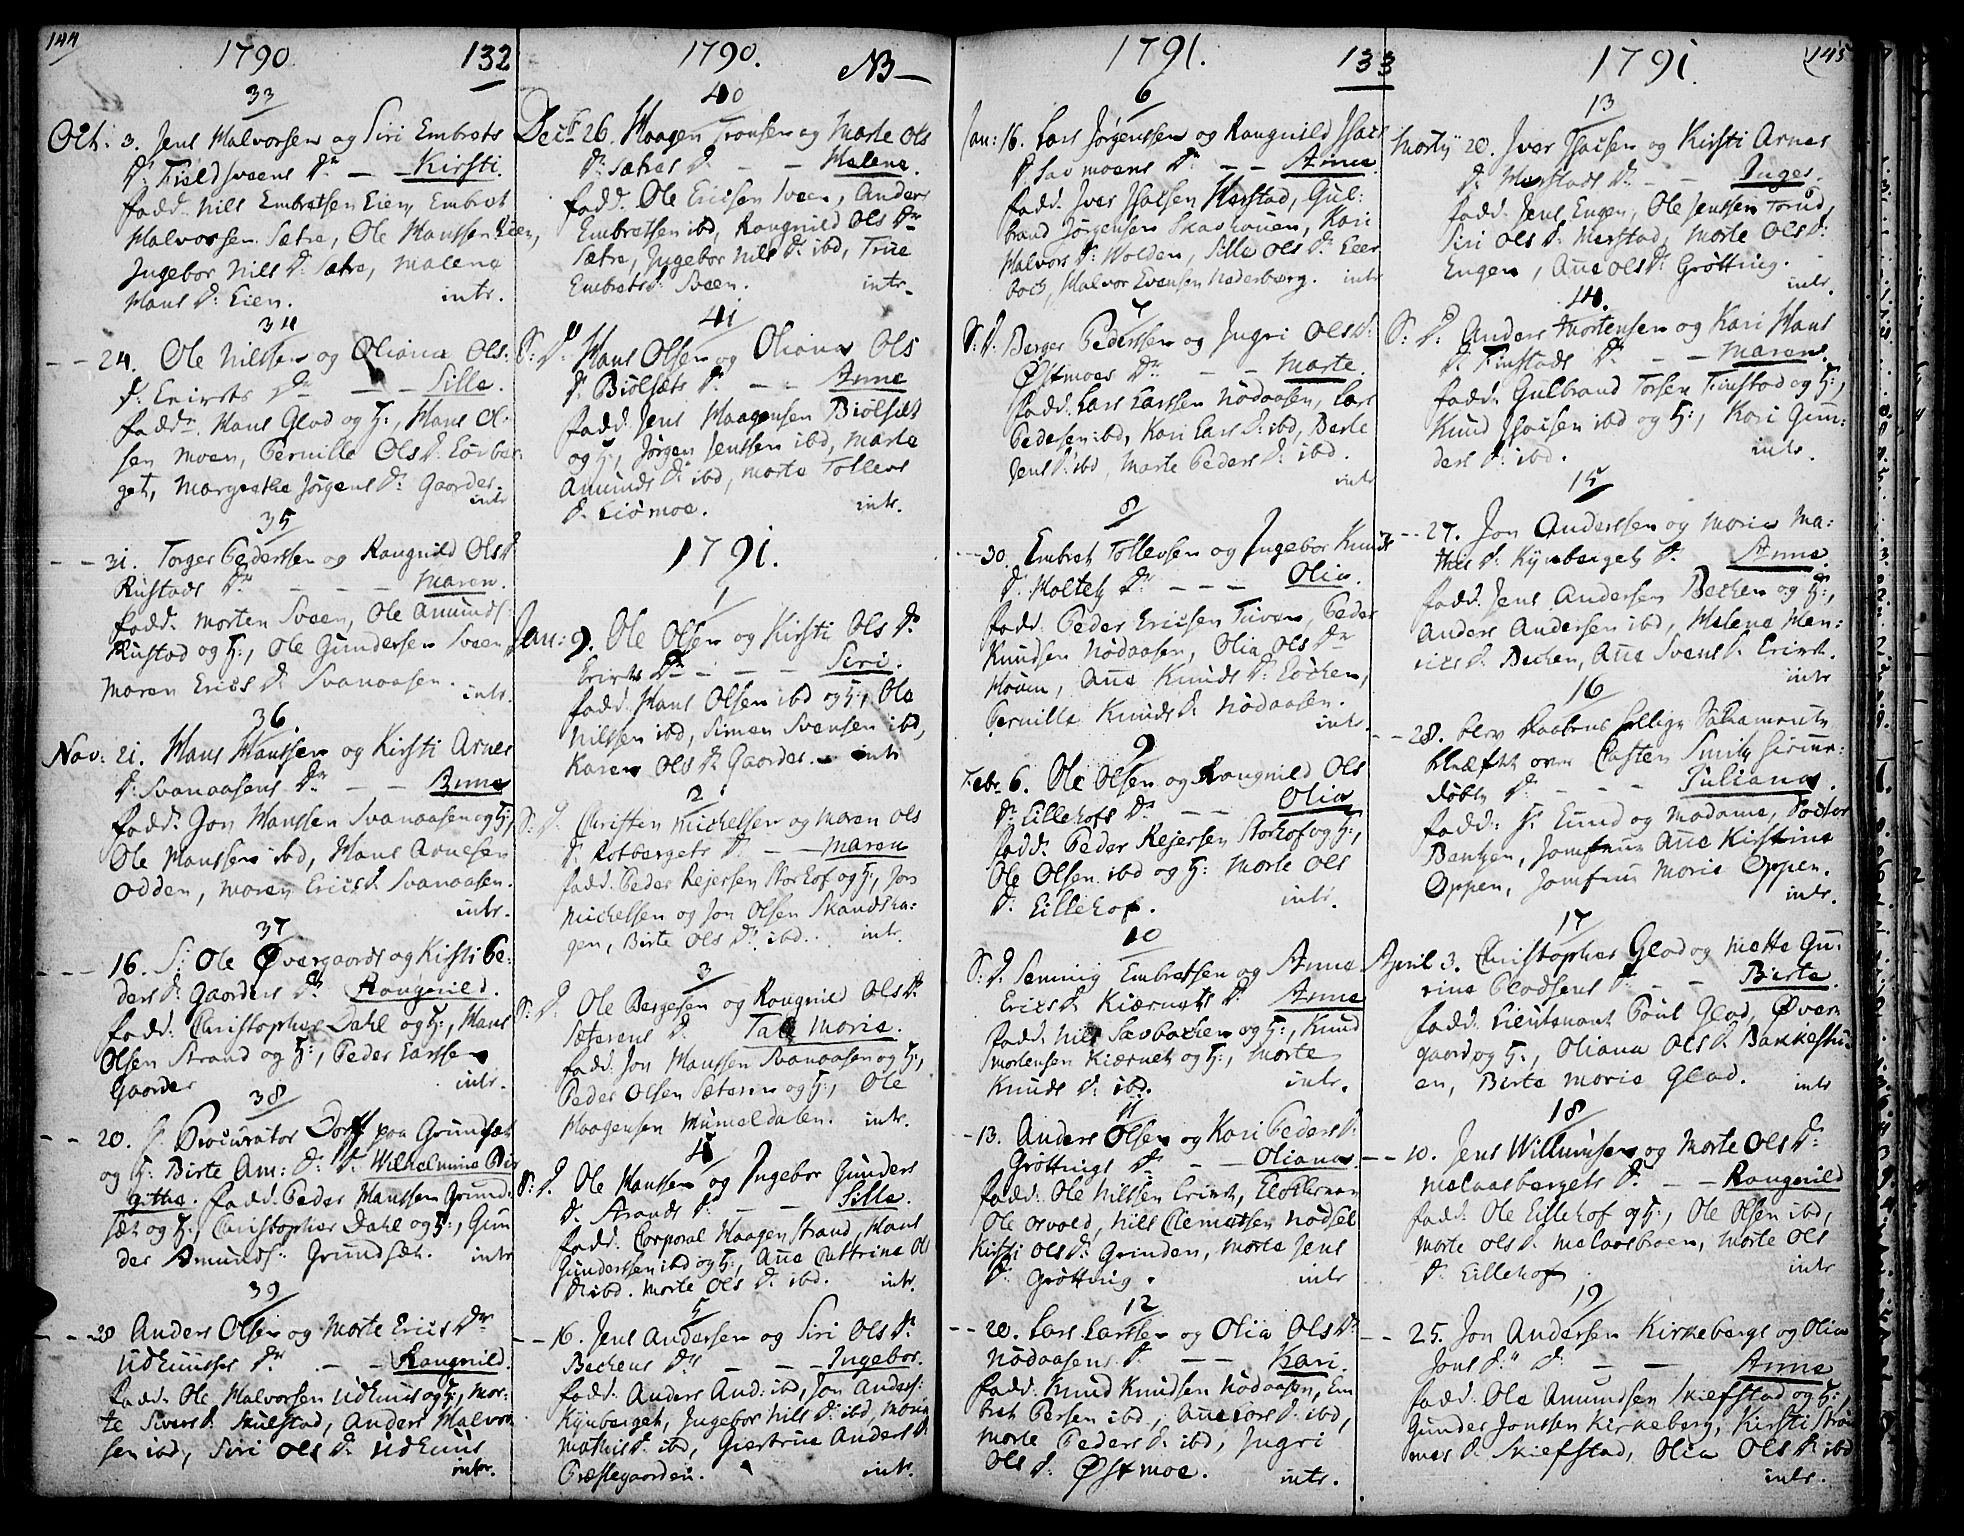 144
1790
132
33
Oct: 3. Jens Halvorsen og Siri Embrets
Dr. Fieldsveens Dr. — Kirsti.
fadd. Nils Embretsen Eien, Embret
Halvorsen Sætre, Ole Hanssen Eien,
Ingebor Nils Dr. Sætre, Malene
Hans Dr. Eien. intr.
34
- - 24. Ole Nilssen og Oliana Ols:
Dr. Errets Dr. — — Sille.
faddr. Hans Glad og H:, Hans Ol-
sen Moen, Pernille Ols Dr. Løvber
get, Margrethe Jørgens Dr. Gaarder.
intr
35
- - 31. Torger Pederssen og Rangnild Ols Dr
Rustads Dr. - - - Maren.
fadd. Morten Sveen, Ole Amunds:
Rustad og H:, Ole Gundersen Sveen,
Maren Erics Dr. Svanaasen. intr.
36.
Nov: 21. Hans Hanssen og Kirsti Arnes
Dr. Svanaasens Dr. — — Anne
fadd. Jon Hanssen Svanaasen og H:,
Ole Hanssen ibd, Hans Arnesen
Odden, Maren Erics Dr. Svanaasen.
intr.
37
- - - 16. S: Ole Øvergaards og Kirsti Pe:
ders Dr. Gaarders Dr. Rangnild.
fadd. Christopher Dahl og H:, Hans
Olsen Strand og H:, Peder Larssen
Gaarder intr.
38
- - 20. Sr. Procurator Dorff paa Grundset
og H: Birte Am: Dr. Dr. Wilhelmina Bir
githa. fadd. Peder Hanssen Grund:
set og H:, Christopher Dahl og H:, Gun
der Amunds: Grundset. intr
39
- - 28 Anders Olsen og Marte Erics Dr.
Udhuusses Dr. - - Rangnild.
fadd. Ole Halvorsen Udhuus og H:, Mar:
te Sivers Dr. Skulstad, Anders Halvor
sen ibd, Siri Ols Dr. Udhuus
intr.
1790.
NB —
40
Decbr 26. Haagen Tronsen og Marte Ols
Dr. Sætres Dr. — Malena.
fadd. Ole Ericsen Sveen, Anders
Embretsen ibd, Rangnild Ols Dr.
Sætre, Ingebor Nils Dr. ibd, True
Embrets Dr. Sveen. intr.
41
S: D: Hans Olsen og Oliana Ols
Dr. Biølsæts Dr. — — Anne
fadd. Jens Haagensen Biølset
og H:, Jørgen Jenssen ibd, Marte
Amunds Dr. ibd, Marte Tollevs
Dr. Liømoe. intr.
1791.
1
Jan: 9. Ole Olsen og Kirsti Ols Dr.
Errets Dr. — — Siri.
fadd. Hans Olsen ibd og H:, Ole
Nilssen ibd, Simen Svensen ibd,
Karen Ols Dr. Gaarder. intr
2
S: D. Christen Michelsen og Maren Ols
Dr. Rotbergets Dr. — Maren
fadd. Peder Rejersen Storhof og H:, Jon
Michelsen og Jon Olsen Skandsha:
gen, Birte Ols Dr. ibd. intr.
3
S: D. Ole Bergesen og Rangnild Ols Dr.
Sæterens Dr. Tale Maria.
fadd. Jon Hanssen Svanaasen og H:,
Peder Olsen Sæteren og H:, Ole
Haagensen Mumeldalen. intr.
4
S: D. Ole Hanssen og Ingebor Gunders
Dr. Strands Dr. — — Sille.
fadd. Corporal Haagen Strand, Hans
Gunderssen ibd og H:, Ane Cattrina Ols
Dr. ibd. Marte Ols Dr. ibd. intr.
5
- - 16. Jens Andersen og Siri Ols Dr.
Bechens Dr. — — Ingebor.
fadd. Anders And: ibd, Jon Anders:
Kynberget, Ingebor Nils Dr. ibd, Maria
Mathis Dr. ibd, Giertrue Anders Dr.
Præstegaarden. intr.
1791.
133
6
Jan: 16. Lars Jørgenssen og Rangnild Isacs
Dr. Savmoens Dr. — — Anne
fadd. Iver Isacsen Harstad, Gul:
brand Jørgensen Skavhouen, Kari
Halvors Dr. Wolden, Sille Ols Dr. Eeer
boch, Halvor Evensen Nederberg. intr
7
S: D. Berger Pederssen og Ingri Ols Dr.
Østmoes Dr. — — Marte.
fadd. Lars Larssen Nødaasen, Lars
Pedersen ibd, Kari Lars Dr. ibd, Berte
Jens Dr. ibd, Marte Peders Dr. ibd.
intr
8
- - - 30. Embret Tollevsen og Ingebor Knuds
Dr. Holtets Dr. — — Olia.
fadd. Peder Ericsen Tuven, Peder
Knudsen Nødaasen, Olia Ols Dr.
Houen, Ane Knuds Dr. Løchen,
Pernille Knuds Dr. Nødaasen.
intr.
9
Febr. 6. Ole Olsen og Rangnild Ols
Dr. Lillehofs Dr. — — Olia
fadd. Peder Rejersen Storhof og H:,
Ole Olsen ibd og H: Marte Ols
Dr. Lillehof. intr.
10
S: D. Senning Embretsen og Anne
Erics Dr. Kiærnets Dr. Anne
fadd. Nils Savbachen og H:, Knud
Mortensen Kiærnet og H:, Marte
Knuds Dr. ibd. intr.
11
- 13. Anders Olsen og Kari Peders Dr.
Grøttings Dr. — — Oliana.
fadd. Ole Nilssen Erret, Elottermann
Ole Arvold, Nils Clemetsen Nødsel
Kirsti Ols Dr. Grinden, Marte Jens
Dr. Grøtting. intr
12
- - 20. Lars Larssen og Olia Ols Dr.
Nødaasens Dr. — — Kari.
fadd. Knud Knudsen Nødaasen, Em
bret Persen ibd, Ane Lars Dr. ibd,
Marte Peders Dr. ibd, Ingri
Ols Dr. Østmoe. intr.
1791.
145
13
Martij 20. Iver Isacsen og Kirsti Arnes
Dr. Harstads Dr. — — Inger.
fadd. Jens Engen, Ole Jenssen Torud,
Siri Ols Dr. Harstad, Marte Ols Dr.
Engen, Ane Ols Dr. Grøtting.
intr.
14.
S: D: Anders Mortensen og Kari Hans
Dr. Finstads Dr. — — Maren.
fadd. Gulbrand Torsen Finstad og H:,
Knud Isacsen ibd og H:, Kari Gun:
ders Dr. ibd. intr.
15
- - 27. Jon Anderssen og Maria Ma:
this Dr. Kynbergets Dr. Anne.
fadd. Jens Andersen Bechen og H:,
Anders Andersen ibd, Malena Hen:
rics Dr. Bechen, Ane Svens Dr. Erret.
intr
16
- - 28. blev Daabens hellige Sakramente
bekræftet over Casten Smitz hiem:
døbte Dr. — — — Juliana.
fadd: Hr. Lund og Madame, Doctor
Bentzen, Jomfrue Ane Kirstine
Oppen, Jomfrue Maria Oppen.
intr.
17
April 3. Christopher Glad og Mette Gu:
rine Cladsens Dr. — — Birte.
fadd. Lieutenant Poul Glad, Øver
gaard og H:, Oliana Ols Dr. Bakkestu:
en, Birte Maria Glad. intr
18
- - 10. Jens Willumsen og Marte Ols Dr.
Melaasbergets Dr. — — Rangnild
fadd. Ole Lillehof og H:, Ole Olsen ibd,
Marte Ols Dr. Melaasbraen, Marte Ols
Dr. Lillehof intr
19
- - 25. Jon Andersen Kirkebergs og Olia
Jons Dr. Dr. — — Anne
fadd. Ole Amundsen Skiefstad og H:,
Gunder Jonssen Kirkeberg, Kirsti Strøm
mes Dr. Skiefstad, Olia Ols Dr. ibd
intr.